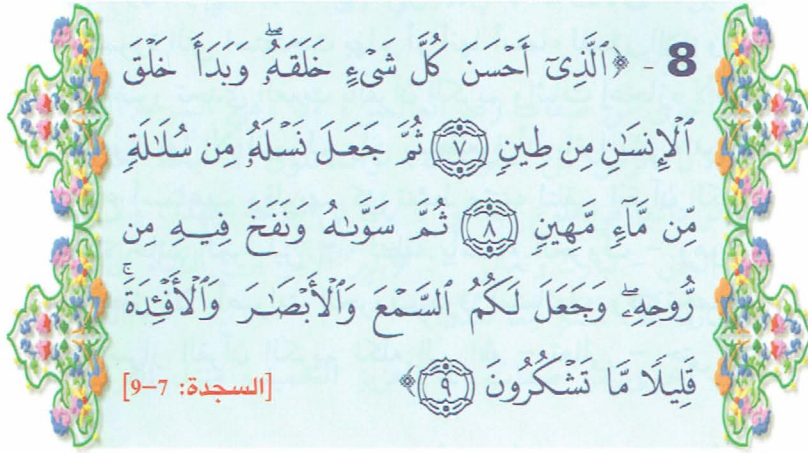 8 - ﴿ٱلَّذِىٓ أَحۡسَنَ كُلَّ شَىۡءٍ خَلَقَهُۥۖ وَبَدَأَ خَلۡقَ
ٱلۡإِنسَٰنِ مِن طِينٖ ٧ ثُمَّ جَعَلَ نَسۡلَهُۥ مِن سُلَٰلَةٖ
مِّن مَّآءٖ مَّهِينٖ ٨ ثُمَّ سَوَّىٰهُ وَنَفَخَ فِيهِ مِن
رُّوحِهِۦۖ وَجَعَلَ لَكُمُ ٱلسَّمۡعَ وَٱلۡأَبۡصَٰرَ وَٱلۡأَفۡـِٔدَةَۚ
قَلِيلٗا مَّا تَشۡكُرُونَ ٩﴾ [السجدة: 7-9]